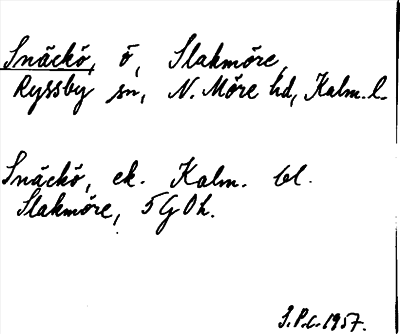 Snäckö, ö, Slakmöre,
Ryssby sn, N. Möre hd, Kalm. l.
Snäckö, ek. Kalm. bl.
Slakmöre, 5G0h.
S.P.L. 1957.